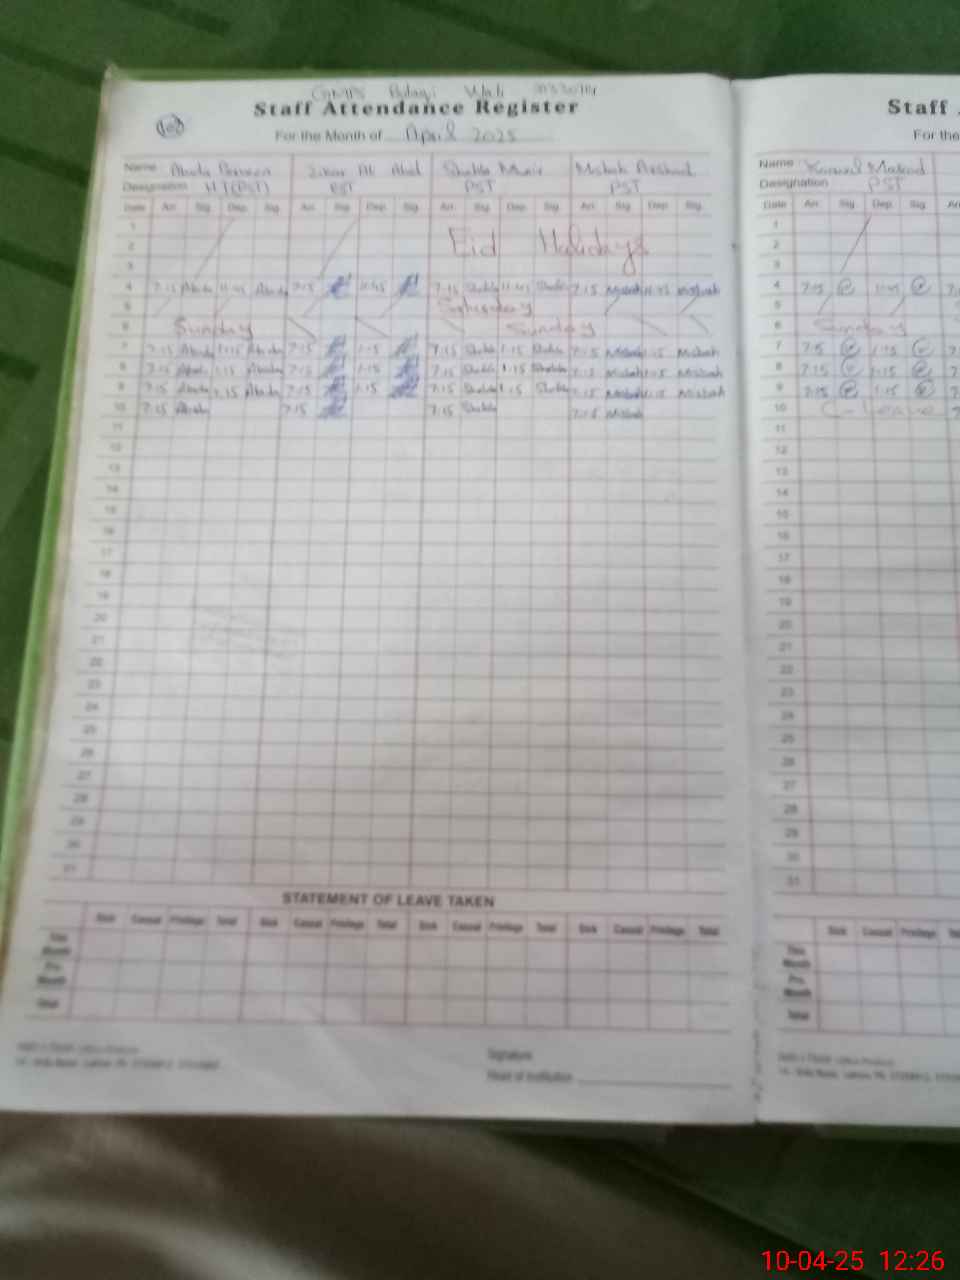 GMPS Wali
Staff Attendance Register
For the Month of April 2025
Name Abida Parveen Abid Shakla Munir Misbah Arshad
Designation H.T(PST) PST PST PST
Date Arr. Sig. Dep. Sig. Arr. Sig. Dep. Sig. Arr. Sig. Dep. Sig. Arr. Sig. Dep. Sig.
1
2 Eid Holidays
3
4 7:15 Abida 11:45 Abida 7:15 11:45 7:15 Shakla 11:45 Shakla 7:15 Misbah 11:45 Misbah
5 Saturday
6 Sunday Sunday
7 7:15 Abida 1:15 Abida 7:15 1:15 7:15 Shakla 1:15 Shakla 7:15 Misbah 1:15 Misbah
8 7:15 Abida 1:15 Abida 7:15 1:15 7:15 Shakla 1:15 Shakla 7:15 Misbah 1:15 Misbah
9 7:15 Abida 1:15 Abida 7:15 1:15 7:15 Shakla 1:15 Shakla 7:15 Misbah 1:15 Misbah
10 7:15 Abida 7:15 7:15 Shakla 7:15 Misbah
11
12
13
14
15
16
17
18
19
20
21
22
23
24
25
26
27
28
29
30
31
STATEMENT OF LEAVE TAKEN
Sick Casual Privilege Total Sick Casual Privilege Total Sick Casual Privilege Total Sick Casual Privilege Total
This Month
Pre. Month
Total
Signature
Head of Institution
Staff
For the
Name Kanwal
Designation PST
Date Arr. Sig. Dep. Sig.
1
2
3
4 7:15 11:45
5
6 Sunday
7 7:15 1:15
8 7:15 1:15
9 7:15 1:15
10 C-leave
11
12
13
14
15
16
17
18
19
20
21
22
23
24
25
26
27
28
29
30
31
Sick Casual Privilege
This Month
Pre. Month
Total
10-04-25 12:26